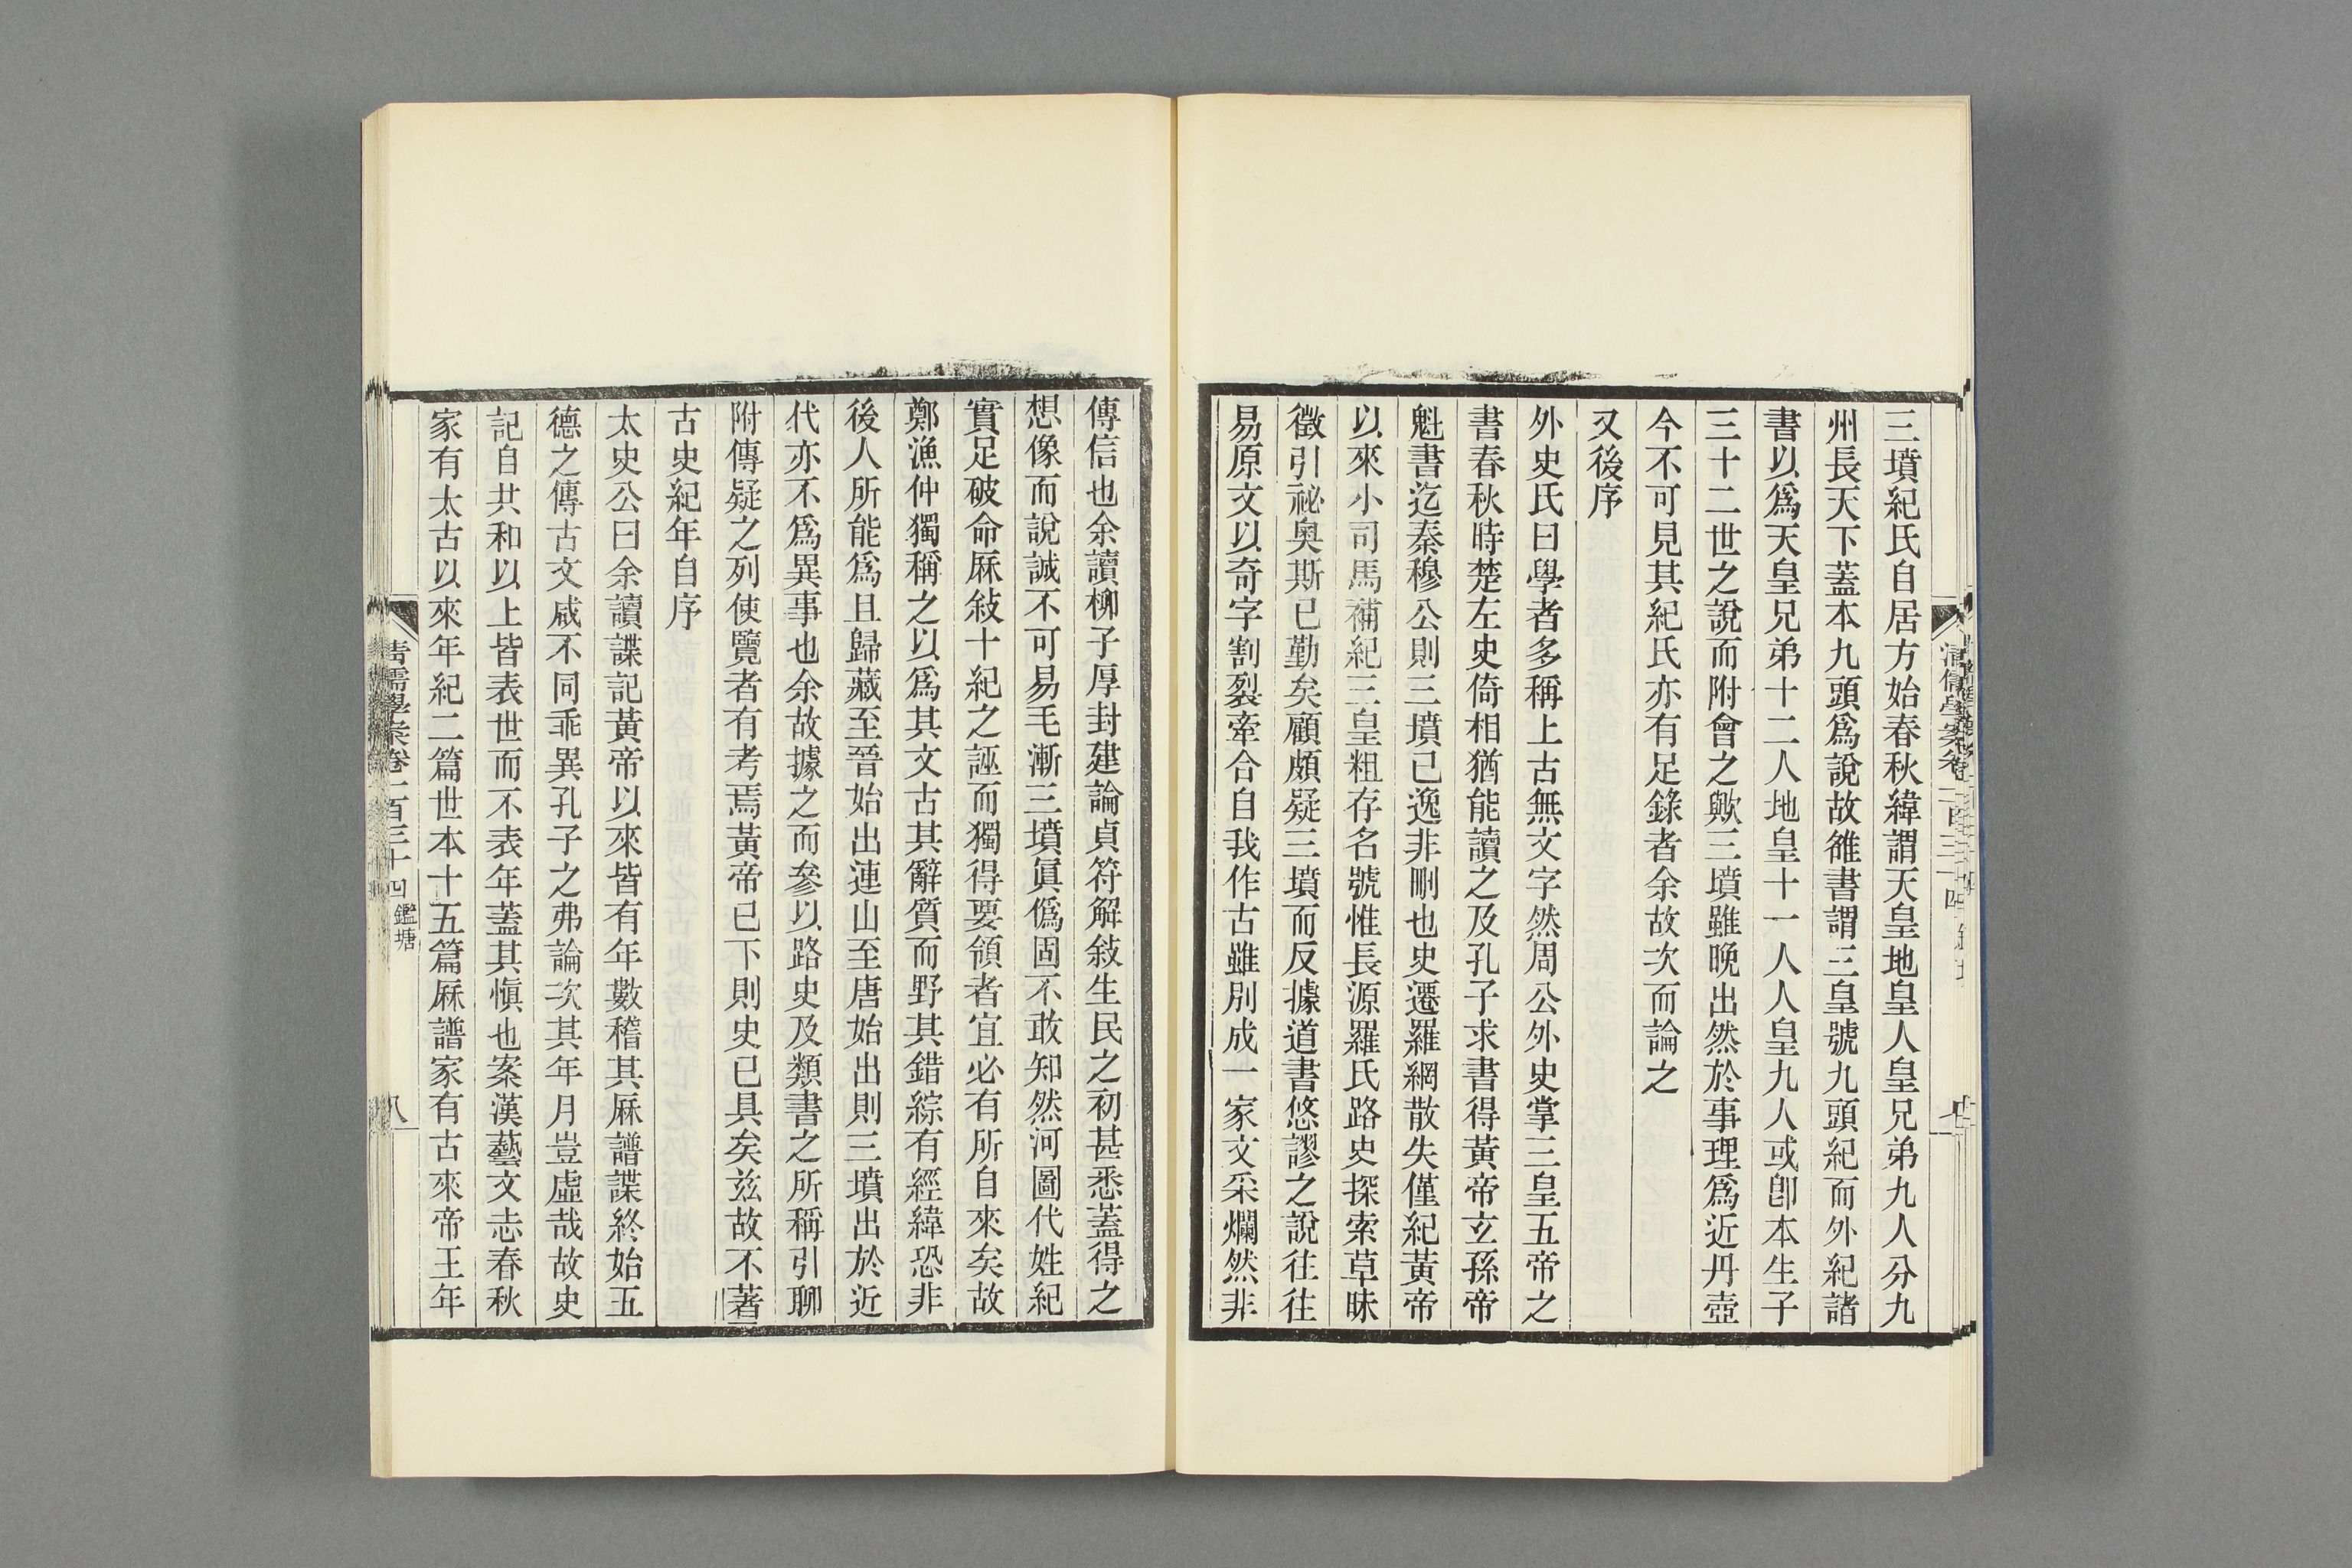 三墳紀氏自居方始春秋緯謂天皇地皇人皇兄弟九人分九
州長天下蓋本九頭爲說故雒書謂三皇號九頭紀而外紀諸
書以爲天皇兄弟十二人地皇十一人人皇九人或卽本生子
三十二世之說而附會之歟三墳雖晚出然於事理爲近丹壺
今不可見其紀氏亦有足錄者余故次而論之
又後序
外史氏曰學者多稱上古無文字然周公外史掌三皇五帝之
書春秋時楚左史倚相猶能讀之及孔子求書得黃帝玄孫帝
魁書迄秦穆公則三墳已逸非刪也史遷羅網散失僅紀黃帝
以來小司馬補紀三皇粗存名號惟長源羅氏路史探索草昧
徵引祕奧斯已勤矣顧頗疑三墳而反據道書悠謬之說往往
易原文以奇字割裂牽合自我作古雖別成一家文采爛然非
傳信也余讀柳子厚封建論貞符解敍生民之初甚悉蓋得之
想像而說誠不可易毛漸三墳眞僞固不敢知然河圖代姓紀
實足破命厤敍十紀之誣而獨得要領者宜必有所自來矣故
鄭漁仲獨稱之以爲其文古其辭質而野其錯綜有經緯恐非
後人所能爲且歸藏至晉始出連山至唐始出則三墳出於近
代亦不爲異事也余故據之而參以路史及類書之所稱引聊
附傳疑之列使覽者有考焉黃帝已下則史已具矣茲故不著
古史紀年自序
太史公曰余讀諜記黃帝以來皆有年數稽其厤譜諜終始五
德之傳古文咸不同乖異孔子之弗論次其年月豈虛哉故史
記自共和以上皆表世而不表年蓋其愼也案漢藝文志春秋
家有太古以來年紀二篇世本十五篇厤譜家有古來帝王年
清儒學案卷一百三十四 鑑塘
八